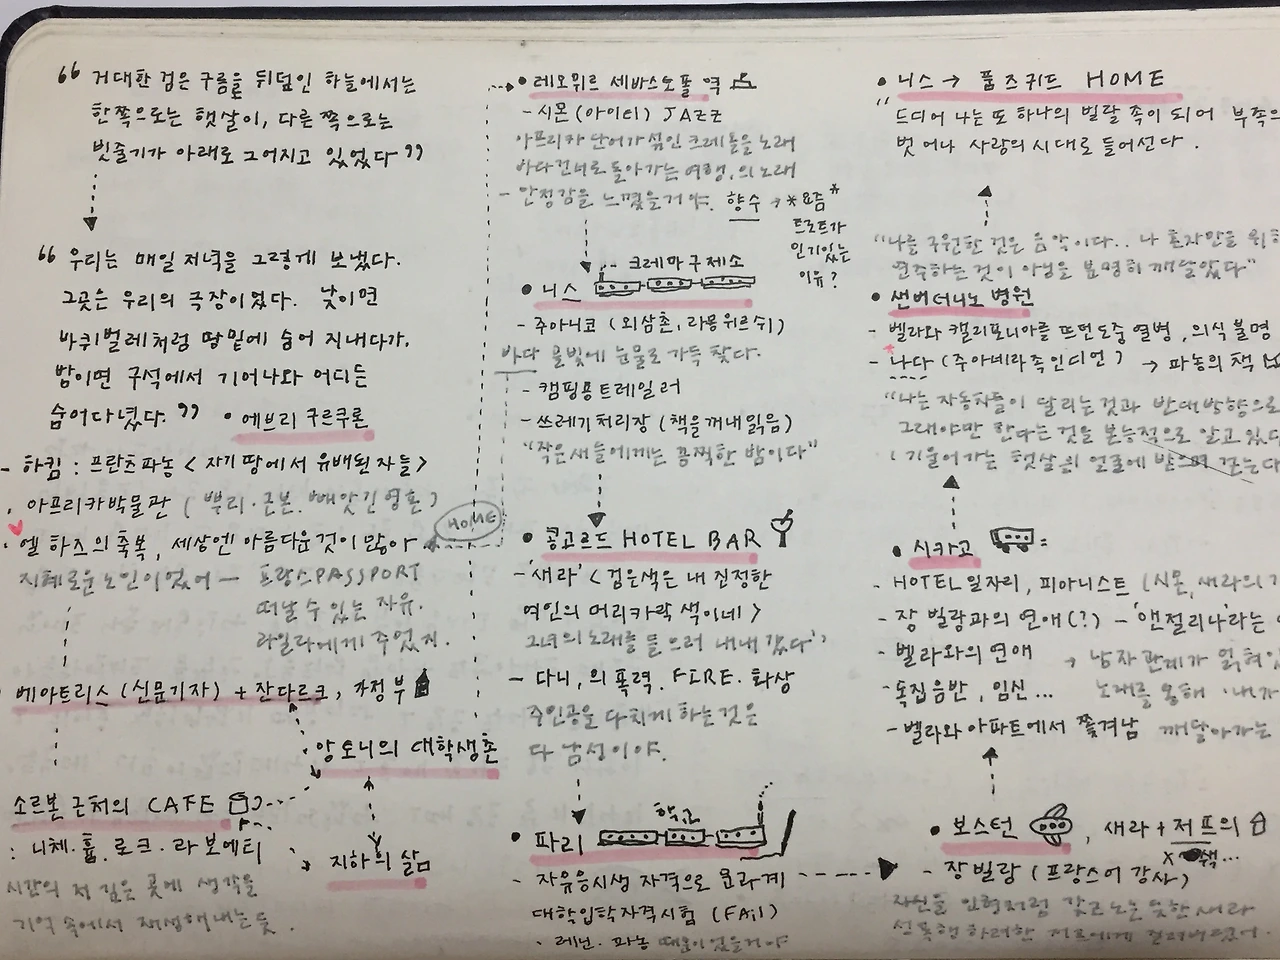 “ 거대한 검은 구름을 뒤덮인 하늘에서는
한쪽으로는 햇살이, 다른 쪽으로는
빗줄기가 아래로 그어지고 있었다 ”
“ 우리는 매일 저녁을 그렇게 보냈다.
그곳은 우리의 극장이었다. 낮이면
바퀴벌레처럼 땅밑에 숨어 지내다가.
밤이면 구석에서 기어나와 어디든
숨어다녔다. ” • 에브리 쿠르쿠론
- 하킴 : 프란츠파농 < 자기 땅에서 유배된 자들 >
. 아프리카박물관 ( 뿌리·근본. 빼앗긴 영혼 )
· 엘 하즈의 축복, 세상엔 아름다운 것이 많아
지혜로운 노인이었어 — 프랑스 PASSPORT
떠날 수 있는 자유.
라일라에게 주었지.
HOME
베아트리스 (신문기자) + 잔다르크, 가정부
앙토니의 대학생촌
소르본 근처의 CAFE
: 니체·흄. 로크·라 보에티
지하의 삶
시간의 저 깊은 곳에 생각을
기억 속에서 재생해내는 듯.
• 레오뮈르 세바스토폴 역
- 시몬 (아이티) JAZZ
아프리카 단어가 섞인 크레올을 노래
바다건너로 돌아가는 여행, 의 노래
- 안정감을 느꼈을거야. 향수 → * 요즘 *
트로트가
인기있는
이유?
크레마구제소
• 니스
- 주아니코 (외삼촌, 라몽 위르쉬)
바다 물빛에 눈물로 가득 찼다.
- 캠핑용트레일러
- 쓰레기처리장 (책을 꺼내 읽음)
“작은새들에게는 끔찍한 밤이다”
• 콩고르드 HOTEL BAR
- ‘새라’ < 검은색은 내 진정한
여인의 머리카락 색이네 >
그녀의 노래를 들으러 내내 갔다”
- 다니, 의 폭력. FIRE. 화상
주인공을 다치게 하는것은
다 남성이야.
학교
• 파리
- 자유응시생 자격으로 문과계
대학입학자격시험 (FAil)
· 레닌. 파농 때문이었을거야
• 니스 → 품즈귀드 HOME
“ 드디어 나는 또 하나의 빌랄 족이 되어 부족의
벗어나 사랑의 시대로 들어선다.
“나를 구원한 것은 음악이다.. 나 혼자만을 위해
연주하는것이 아님을 분명히 깨달았다”
• 샌버더니노 병원
- 벨라와 캘리포니아를 뜨던 도중 열병, 의식 불명
- 나다 (주아네라족인디언) → 파농의 책
“나는 자동차들이 달리는것과 반대방향으로
그래야만 한다는 것을 본능적으로 알고 있다
( 기울어가는 햇살을 얼굴에 받으며 걷는다
• 시카고
- HOTEL 일자리, 피아니스트 (시몬, 새라의
- 장 빌랑과의 연애 (?) - ‘앤절리나’라는
- 벨라와의 연애 → 남자관계가 얽혀있
- 독집음반, 임신... 노래를 통해 ·내가
- 벨라와 아파트에서 쫓겨남 깨달아가는
• 보스턴, 새라 + 저프의
X 색...
- 장 빌랑 (프랑스어 강사)
자신을 인형처럼 갖고 노는 듯한 새라
성폭행 하려한 저프에게